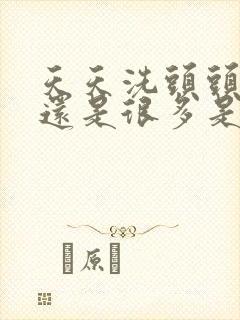 天天洗頭頭
還是很多是
原